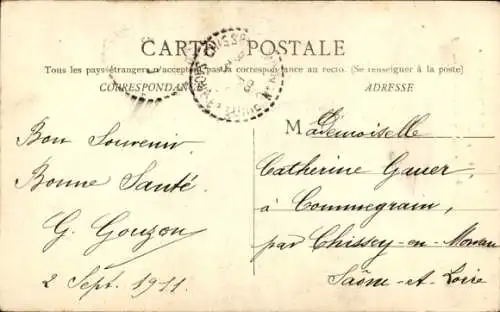 CARTE POSTALE
Tous les pays étrangers n'acceptent pas la correspondance au recto. (Se renseigner à la poste)
CORRESPONDANCE
ADRESSE
Bon Souvenir
Bonne Santé
G. Gouzon
2 Sept. 1911.
Mademoiselle
Catherine Gauer,
à Commegrain,
par Chissey-en-Morvan
Saône-et-Loire
CHISSEY